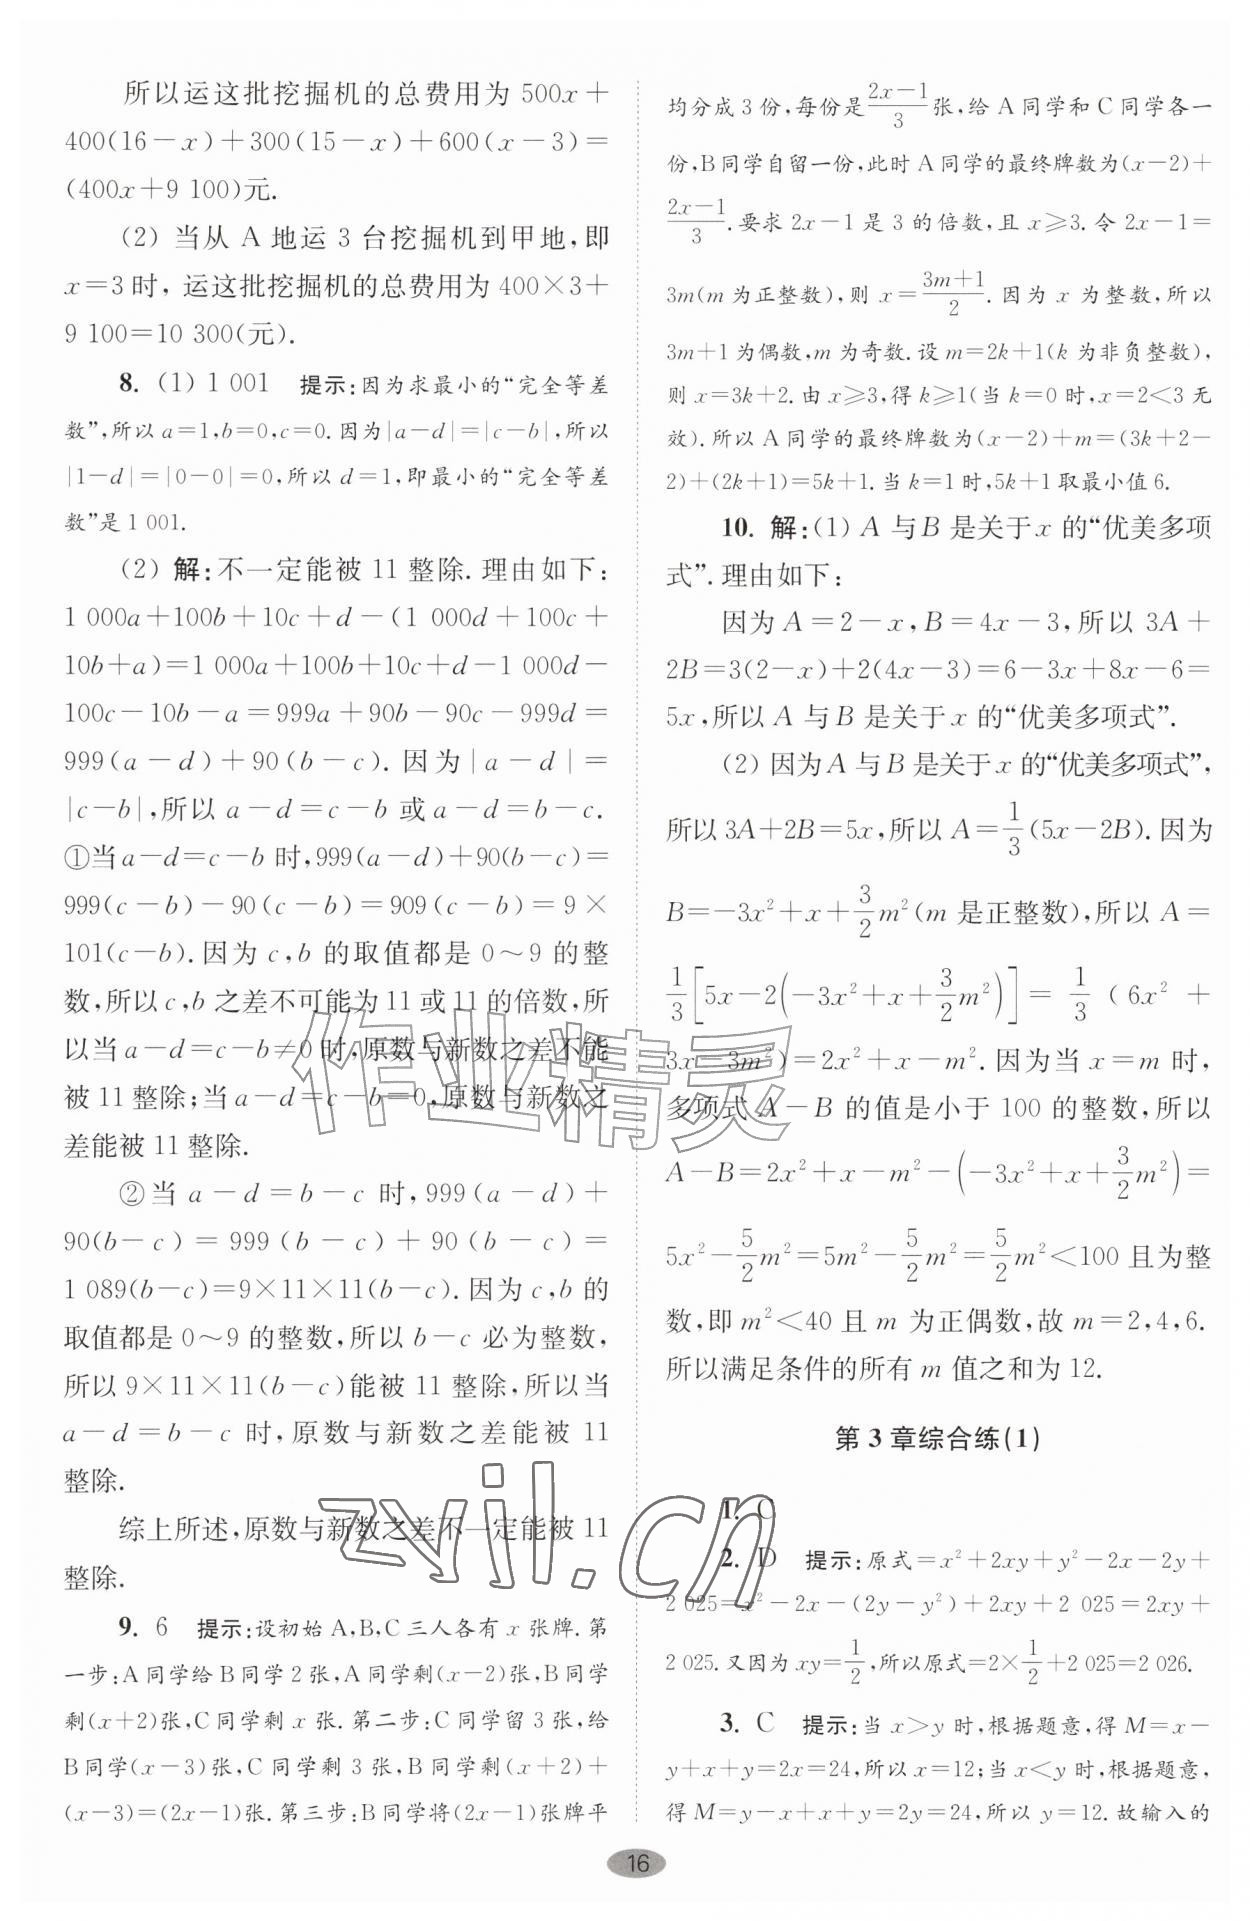 所以运这批挖掘机的总费用为 500x+
400(16-x)+300(15-x)+600(x-3)=
(400x+9 100)元.
(2) 当从 A 地运 3 台挖掘机到甲地,即
x=3 时, 运这批挖掘机的总费用为 400×3+
9 100=10 300(元).
8. (1) 1 001 提示:因为求最小的“完全等差
数”,所以 a=1,b=0,c=0. 因为|a-d|=|c-b|,所以
|1-d|=|0-0|=0,所以 d=1,即最小的“完全等差
数”是 1 001.
(2) 解:不一定能被 11 整除.理由如下:
1 000a+100b+10c+d-(1 000d+100c+
10b+a)=1 000a+100b+10c+d-1 000d-
100c-10b-a=999a+90b-90c-999d=
999(a-d)+90(b-c). 因为|a-d|=
|c-b|,所以 a-d=c-b 或 a-d=b-c.
①当 a-d=c-b 时,999(a-d)+90(b-c)=
999(c-b)-90(c-b)=909(c-b)=9×
101(c-b).因为 c,b 的取值都是 0~9 的整
数,所以 c,b 之差不可能为 11 或 11 的倍数,所
以当 a-d=c-b≠0 时,原数与新数之差不能
被 11 整除;当 a-d=c-b=0,原数与新数之
差能被 11 整除.
②当 a-d=b-c 时,999(a-d)+
90(b-c)=999(b-c)+90(b-c)=
1 089(b-c)=9×11×11(b-c).因为 c,b 的
取值都是 0~9 的整数,所以 b-c 必为整数,
所以 9×11×11(b-c)能被 11 整除,所以当
a-d=b-c 时,原数与新数之差能被 11
整除.
综上所述,原数与新数之差不一定能被 11
整除.
9. 6 提示:设初始 A,B,C 三人各有 x 张牌. 第
一步:A 同学给 B 同学 2 张,A 同学剩(x-2)张,B 同学
剩(x+2)张,C 同学剩 x 张. 第二步:C 同学留 3 张,给
B 同学(x-3)张,C 同学剩 3 张,B 同学剩(x+2)+
(x-3)=(2x-1)张. 第三步:B 同学将(2x-1)张牌平
均分成 3 份,每份是\frac{2x-1}{3}张,给 A 同学和 C 同学各一
份,B 同学自留一份,此时 A 同学的最终牌数为(x-2)+
\frac{2x-1}{3}.要求 2x-1 是 3 的倍数,且 x≥3. 令 2x-1=
3m(m 为正整数),则 x=\frac{3m+1}{2}. 因为 x 为整数,所以
3m+1 为偶数,m 为奇数. 设 m=2k+1(k 为非负整数),
则 x=3k+2. 由 x≥3,得 k≥1(当 k=0 时,x=2<3 无
效). 所以 A 同学的最终牌数为(x-2)+m=(3k+2-
2)+(2k+1)=5k+1. 当 k=1 时,5k+1 取最小值 6.
10. 解:(1) A 与 B 是关于 x 的“优美多项
式”.理由如下:
因为 A=2-x,B=4x-3,所以 3A+
2B=3(2-x)+2(4x-3)=6-3x+8x-6=
5x,所以 A 与 B 是关于 x 的“优美多项式”.
(2) 因为 A 与 B 是关于 x 的“优美多项式”,
所以 3A+2B=5x,所以 A=\frac{1}{3}(5x-2B).因为
B=-3x²+x+\frac{3}{2}m²(m 是正整数),所以 A=
\frac{1}{3}[5x-2(-3x²+x+\frac{3}{2}m²)]=\frac{1}{3}(6x²+
3x-3m²)=2x²+x-m². 因为当 x=m 时,
多项式 A-B 的值是小于 100 的整数,所以
A-B=2x²+x-m²-(-3x²+x+\frac{3}{2}m²)=
5x²-\frac{5}{2}m²=5m²-\frac{5}{2}m²=\frac{5}{2}m²<100 且为整
数,即 m²<40 且 m 为正偶数,故 m=2,4,6.
所以满足条件的所有 m 值之和为 12.
第 3 章综合练(1)
1. C
2. D 提示:原式=x²+2xy+y²-2x-2y+
2 025=x²-2x-(2y-y²)+2xy+2 025=2xy+
2 025. 又因为 xy=\frac{1}{2},所以原式=2×\frac{1}{2}+2 025=2 026.
3. C 提示:当 x>y 时,根据题意,得 M=x-
y+x+y=2x=24,所以 x=12;当 x<y 时,根据题意,
得 M=y-x+x+y=2y=24,所以 y=12. 故输入的
作业精灵
zyjl.cn
16